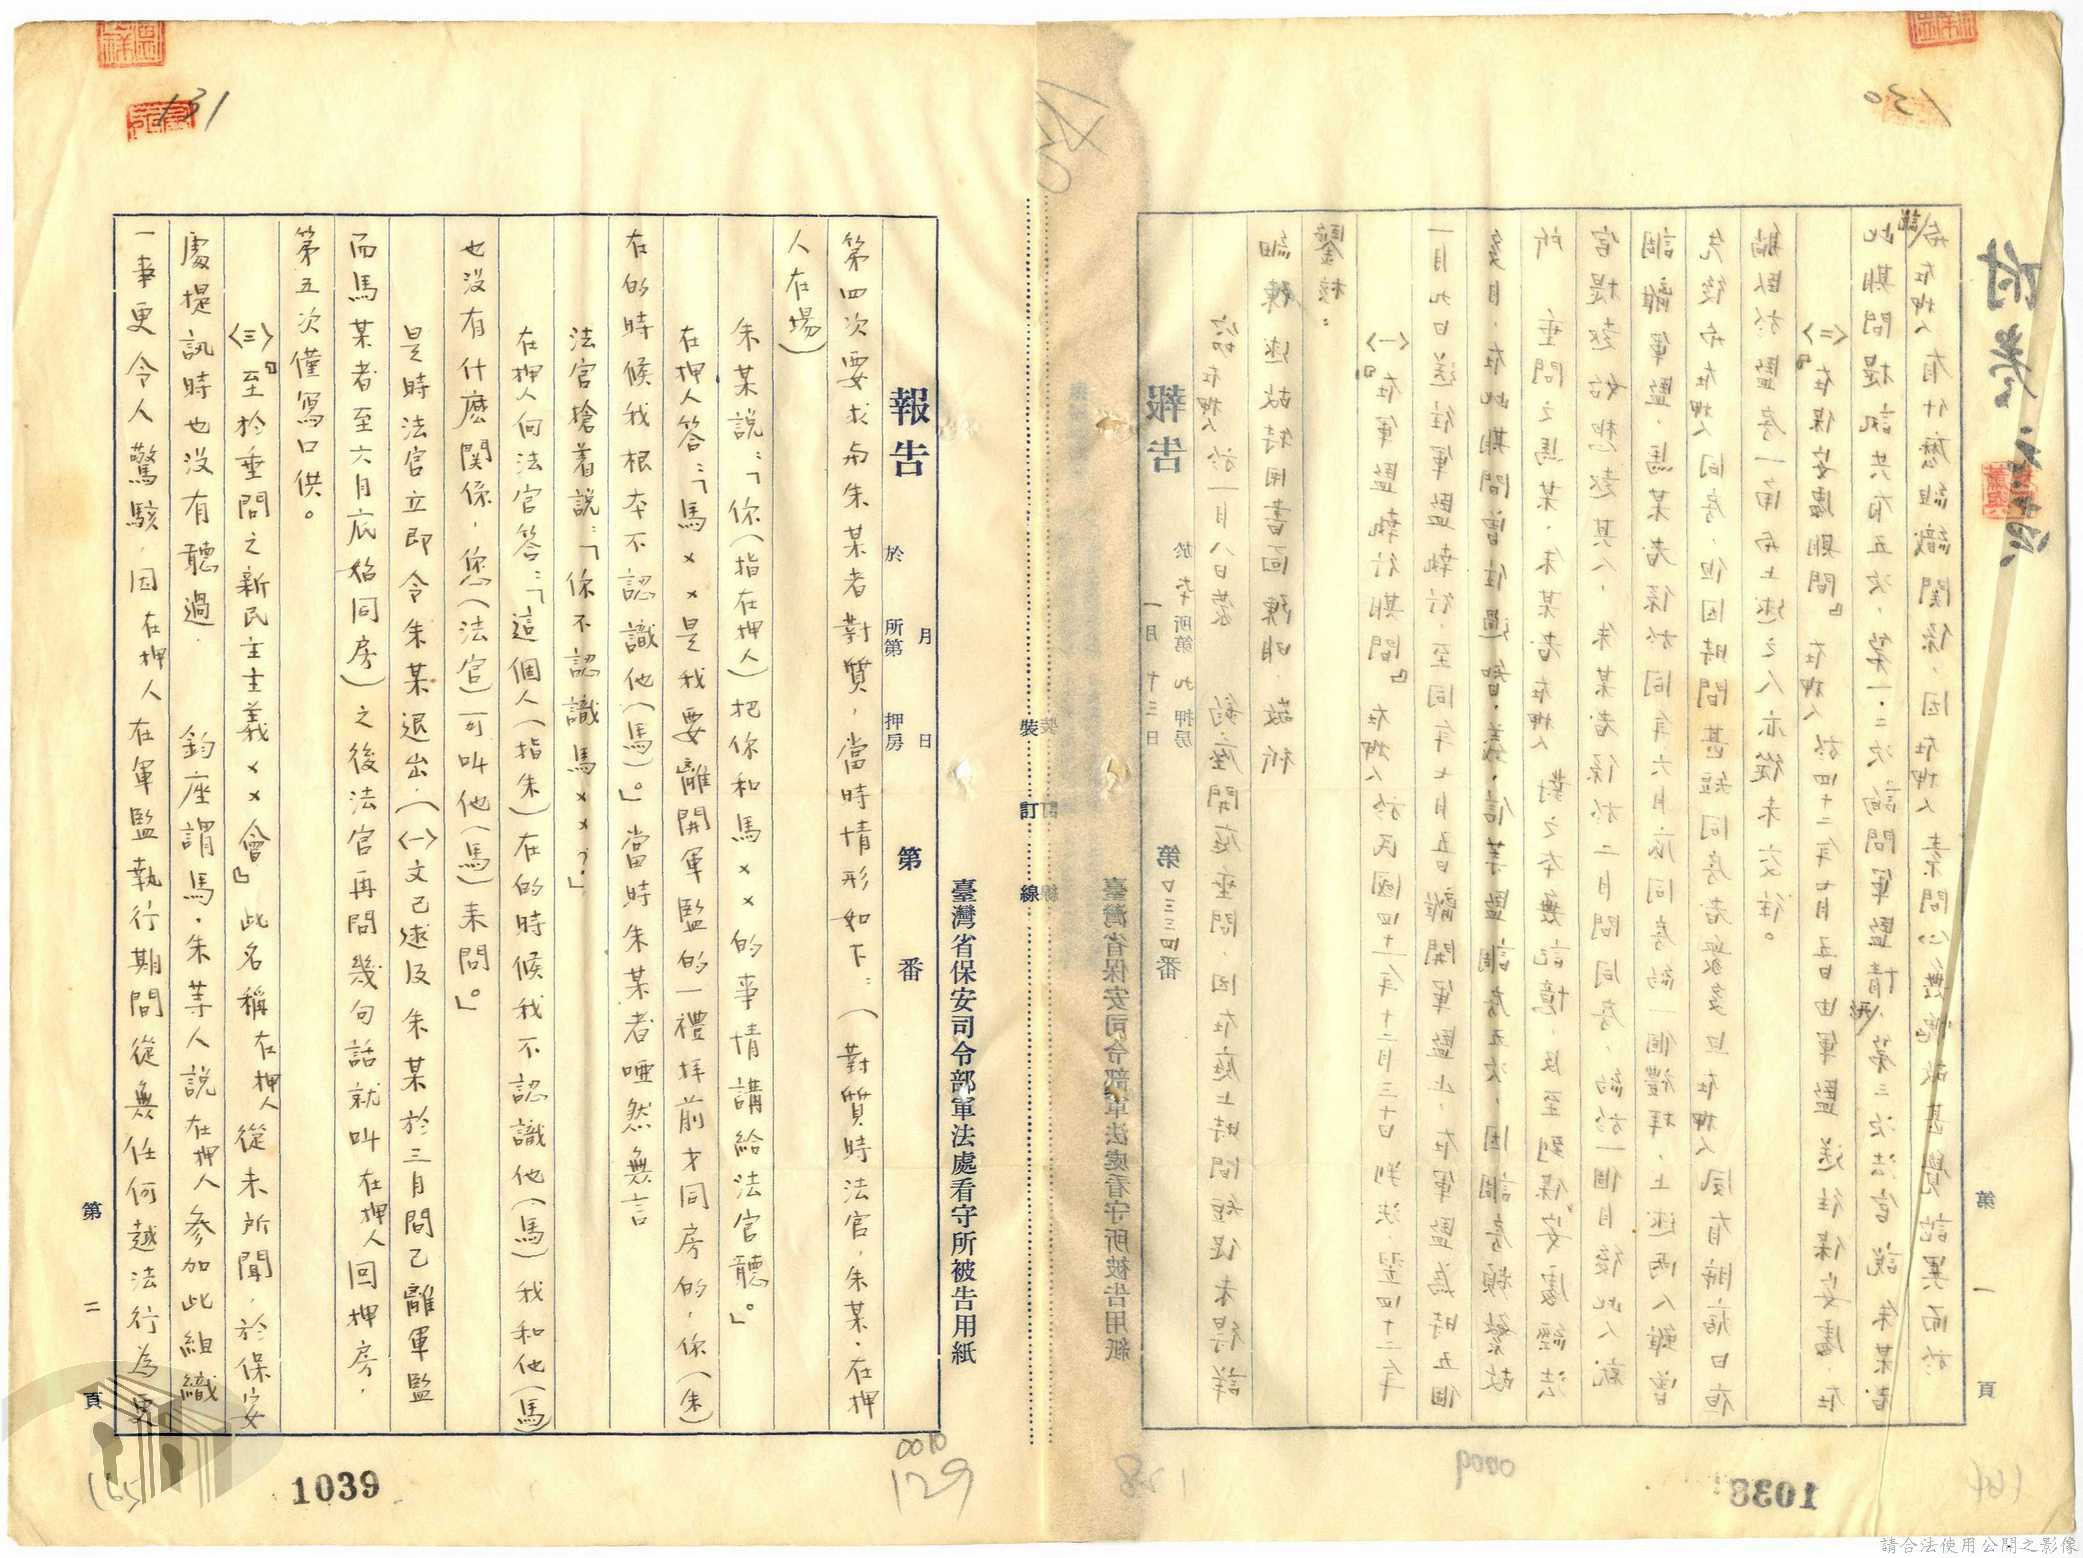 附卷
第一頁
130
臺灣省保安司令部軍法處看守所被告用紙
報告 於本所第九押房 一月十三日 第口三三四番
竊在押人於一月八日蒙 鈞座開庭垂問,因在庭上時間短促未得詳
細陳述故特用書面陳明,敬祈
鑒核:
〈一〉『在軍監執行期間』在押人於民國四十一年十二月三十日判決翌四十二年
一月九日送往軍監執行,至同年七月五日離開軍監止,在軍監為時五個
多月,在此期間曾住過智、義、信等監調房五次,因調房頻繁故
所 垂問之馬某,朱某者在押人對之本無記憶 及至到保安處經法
官提起始想起其人,朱某者係於二月間同房,約於一個月後此人就
調離軍監,馬某者係於同年六月底同房約一個禮拜,上述兩人雖曾
先後與在押人同房,但因時間甚短同房者眾多且在押人夙有肺病日夜
躺臥於監房一角與上述之人亦從未交往。
〈二〉『在保安處期間』在押人於四十二年七月五日由軍監送往保安處在
此期間提訊共有五次,第一.二次詢問軍監情形,第三次法官說朱某者
說在押人有什麼組織關係,因在押人 無愧故甚覺詫異而於
128
0009
1038
164
裝 訂 線
131
臺灣省保安司令部軍法處看守所被告用紙
報告 於 所第 押房 月 日 第 番
第四次要求與朱某者對質,當時情形如下:(對質時法官,朱某,在押
人在場)
朱某說:「你(指在押人)把你和馬××的事情講給法官聽。」
在押人答:「馬××是我要離開軍監的一禮拜前才同房的,你(朱)
在的時候我根本不認識他(馬)。」當時朱某者啞然無言
法官搶着說:「你不認識馬××?」
在押人向法官答:「這個人(指朱)在的時候我不認識他(馬)我和他(馬)
也沒有什麼関係,您(法官)可叫他(馬)來問。」
是時法官立即令朱某退出,(〈一〉文已述及朱某於三月間已離軍監
而馬某者至六月底始同房)之後法官再問幾句話就叫在押人回押房,
第五次僅寫口供。
〈三〉『至於垂問之新民主主義××會』此名稱在押人從未所聞,於保安
處提訊時也沒有聽過. 鈞座謂馬,朱等人說在押人參加此組織
一事更令人驚駭,因在押人在軍監執行期間從無任何越法行為更
第二頁
0010
129
1039
165
請合法使用公開之影像